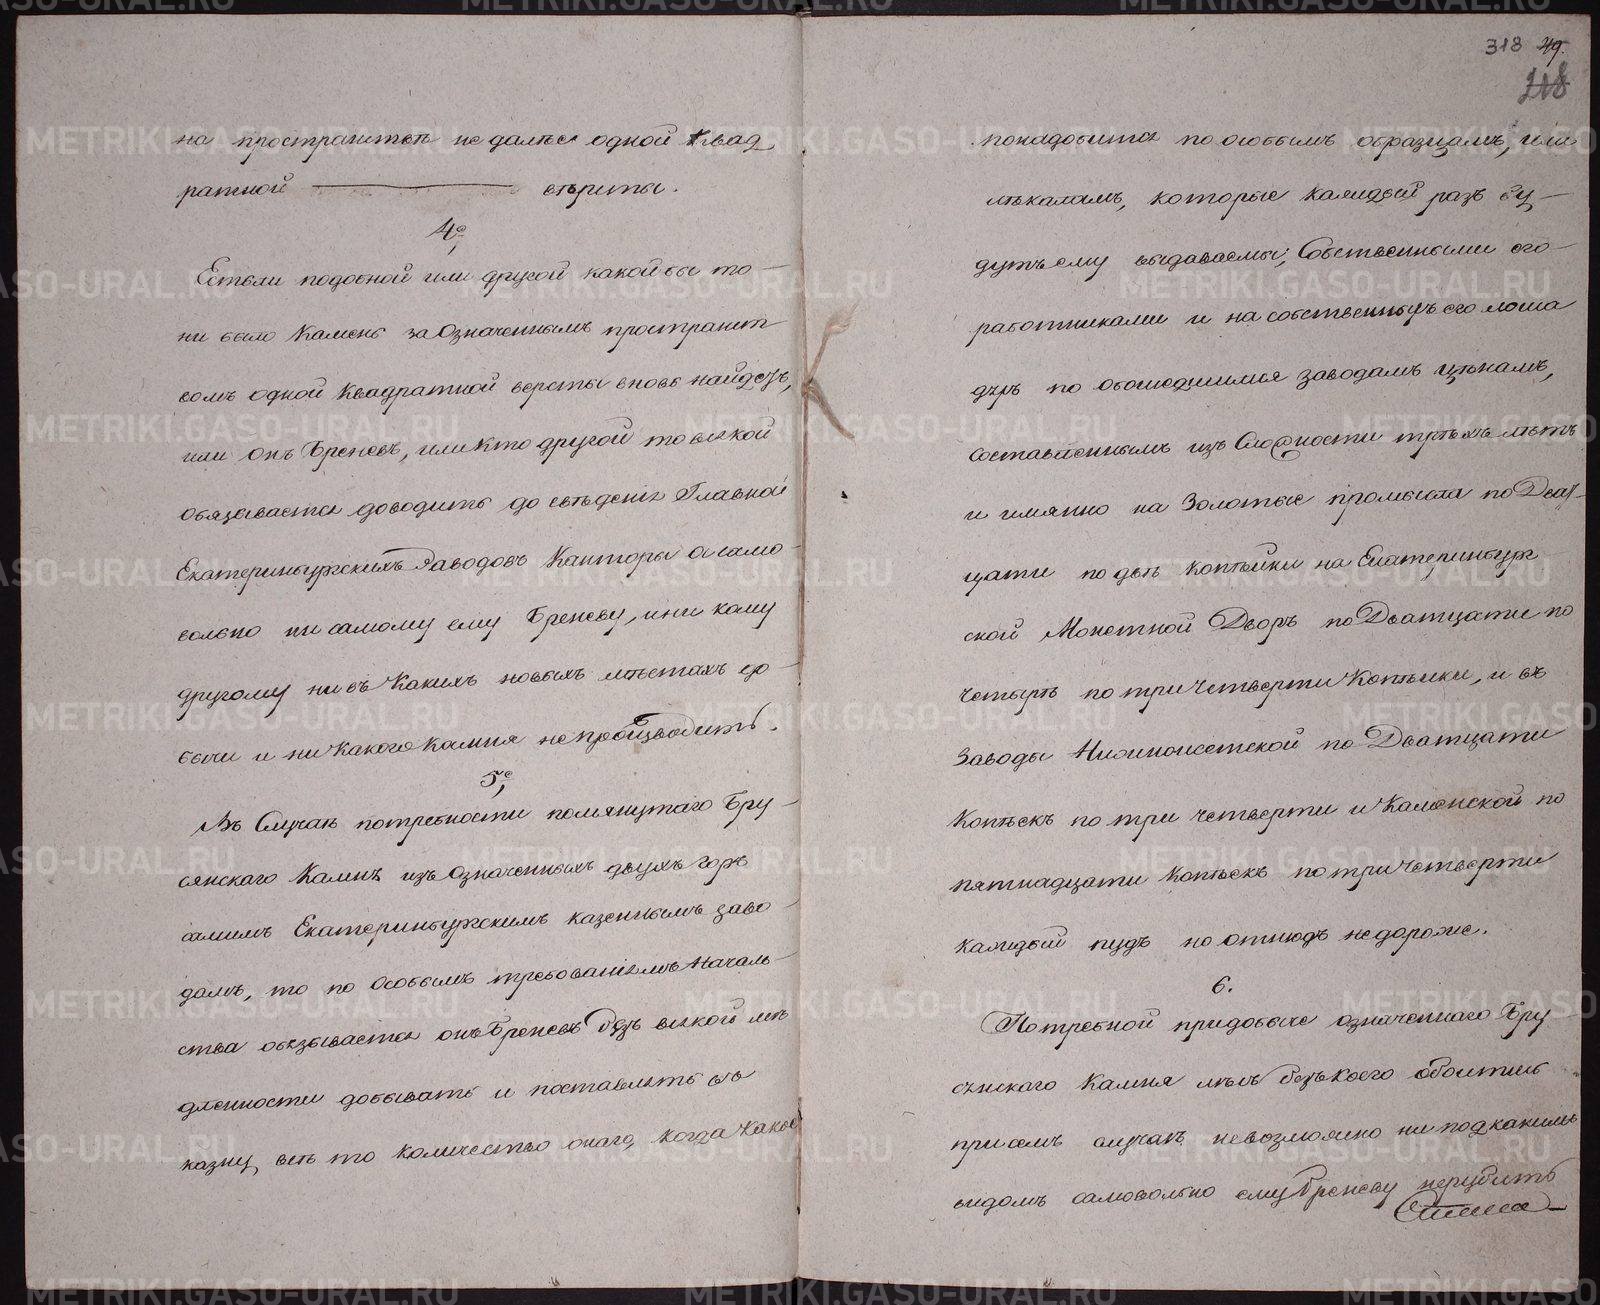 на пространстве не далѣе одной квад
ратной ——— версты.
4е,
Естьли подобной или другой какой бы то
ни было Камень за Означеннымъ пространст
вомъ одной Квадратной версты вновь найдетъ,
или онъ Бреневъ, или кто другой то всякой
обязывается доводить до свѣденія Главной
Екатеринбургскихъ Заводовъ Канторы а само
вольно ни самому ему Бреневу, ни кому
другому ни въ Какихъ новыхъ мѣстахъ до
бычи и никакого камня не производить.
5е,
Въ Случаѣ потребности помянутаго Бру
сянскаго Камня изъ Означенныхъ двухъ горъ
самимъ Екатеринбургскимъ казеннымъ заво
дамъ, то по Особымъ требованіямъ Началь
ства обязывается онъ Бреневъ безъ всякой ме
дленности добывать и поставлять въ
казну все то количество онаго, когда какое
318 219.
218
понадобится по особымъ образцамъ, или
лѣкаламъ, которые каждый разъ бу
дутъ ему выдаваемы; Собственными его
работниками и на собственныхъ его лоша
дяхъ по обошедшимся заводамъ цѣнамъ,
составленнымъ изъ Сложности трехъ лѣтъ
и имянно на Золотые промысла по Двад
цати по двѣ копѣйки на Екатеринбург
ской Монетной Дворъ по Дватцати по
четырѣ по три четверти Копѣйки, и въ
Заводы Нижнеисетской по Дватцати
Копѣекъ по три четверти и Каменской по
пятнадцати копѣекъ по три четверти
каждый пудъ но отнюдь не дороже.
6.
Потребной при добыче означеннаго Бру
сянскаго Камня лѣсъ безъ коего обоитись
при семъ случаѣ невозможно ни подъ какимъ
видомъ самовольно ему Бреневу не рубить